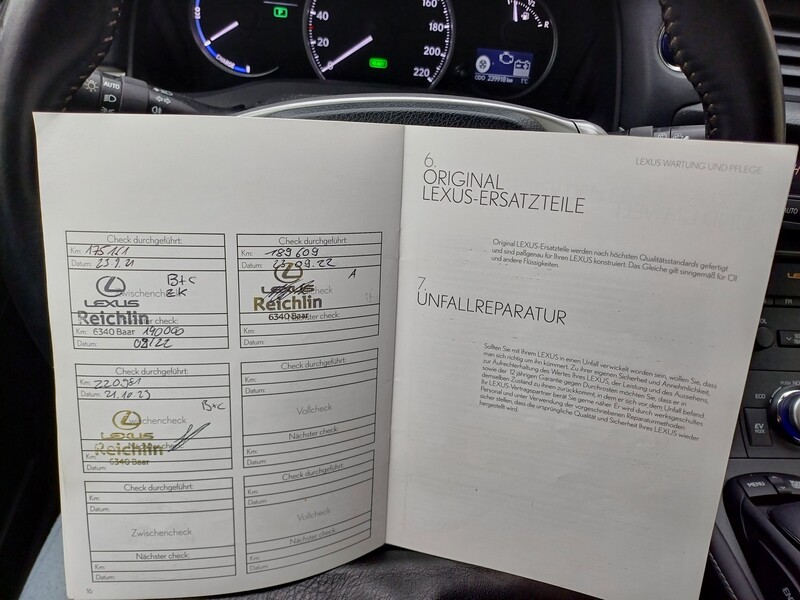 ECO
CHARGE
40
20
0
160
180
200
220
1/2
R
ODO 239918 km
1°C
AUTO
Check durchgeführt:
Km: 175 161
Datum: 25.9.21
B+C
LEXUS
Zwischencheck
Reichlin
Nächster check:
Km: 6340 Baar 190000
Datum: 09/22
Check durchgeführt:
Km: 220 981
Datum: 21.10.23
B+C
Zwischencheck
LEXUS
Reichlin
Km:
6340 Baar
Datum:
Check durchgeführt:
Km:
Datum:
Zwischencheck
Nächster check:
Km:
Datum:
16
Check durchgeführt:
Km: 189 609
Datum: 23.09.22
A
LEXUS
Reichlin
Nächster check:
6340 Baar
Km:
Datum:
Check durchgeführt:
Km:
Datum:
Vollcheck
Nächster check:
Km:
Datum:
Check durchgeführt:
Km:
Datum:
Vollcheck
Nächster check:
Km:
Datum:
LEXUS WARTUNG UND PFLEGE
6.
ORIGINAL
LEXUS-ERSATZTEILE
Original LEXUS-Ersatzteile werden nach höchsten Qualitätsstandards gefertigt
und sind paßgenau für Ihren LEXUS konstruiert. Das Gleiche gilt sinngemäß für Öl
und andere Flüssigkeiten.
7.
UNFALLREPARATUR
Sollten Sie mit Ihrem LEXUS in einen Unfall verwickelt worden sein, wollen Sie, dass
man sich richtig um ihn kümmert. Zu Ihrer eigenen Sicherheit und Annehmlichkeit,
zur Aufrechterhaltung des Wertes Ihres LEXUS, der Leistung und des Aussehens,
sowie der 12 jährigen Garantie gegen Durchrosten möchten Sie, dass er in
demselben Zustand zu Ihnen zurückkommt, in dem er sich vor dem Unfall befand.
Ihr LEXUS Vertragspartner berät Sie gerne näher. Er wird durch werksgeschultes
Personal und unter Verwendung der vorgeschriebenen Reparaturmethoden
sicher stellen, dass die ursprüngliche Qualität und Sicherheit Ihres LEXUS wieder
hergestellt wird.
AUTO
FM
ECO
EV
MODE
MENU